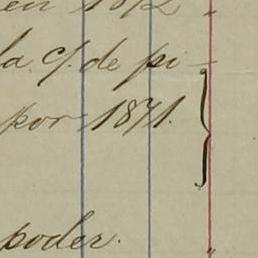 en 1872 "
la c/. de pi-
por 1871.
poder. "